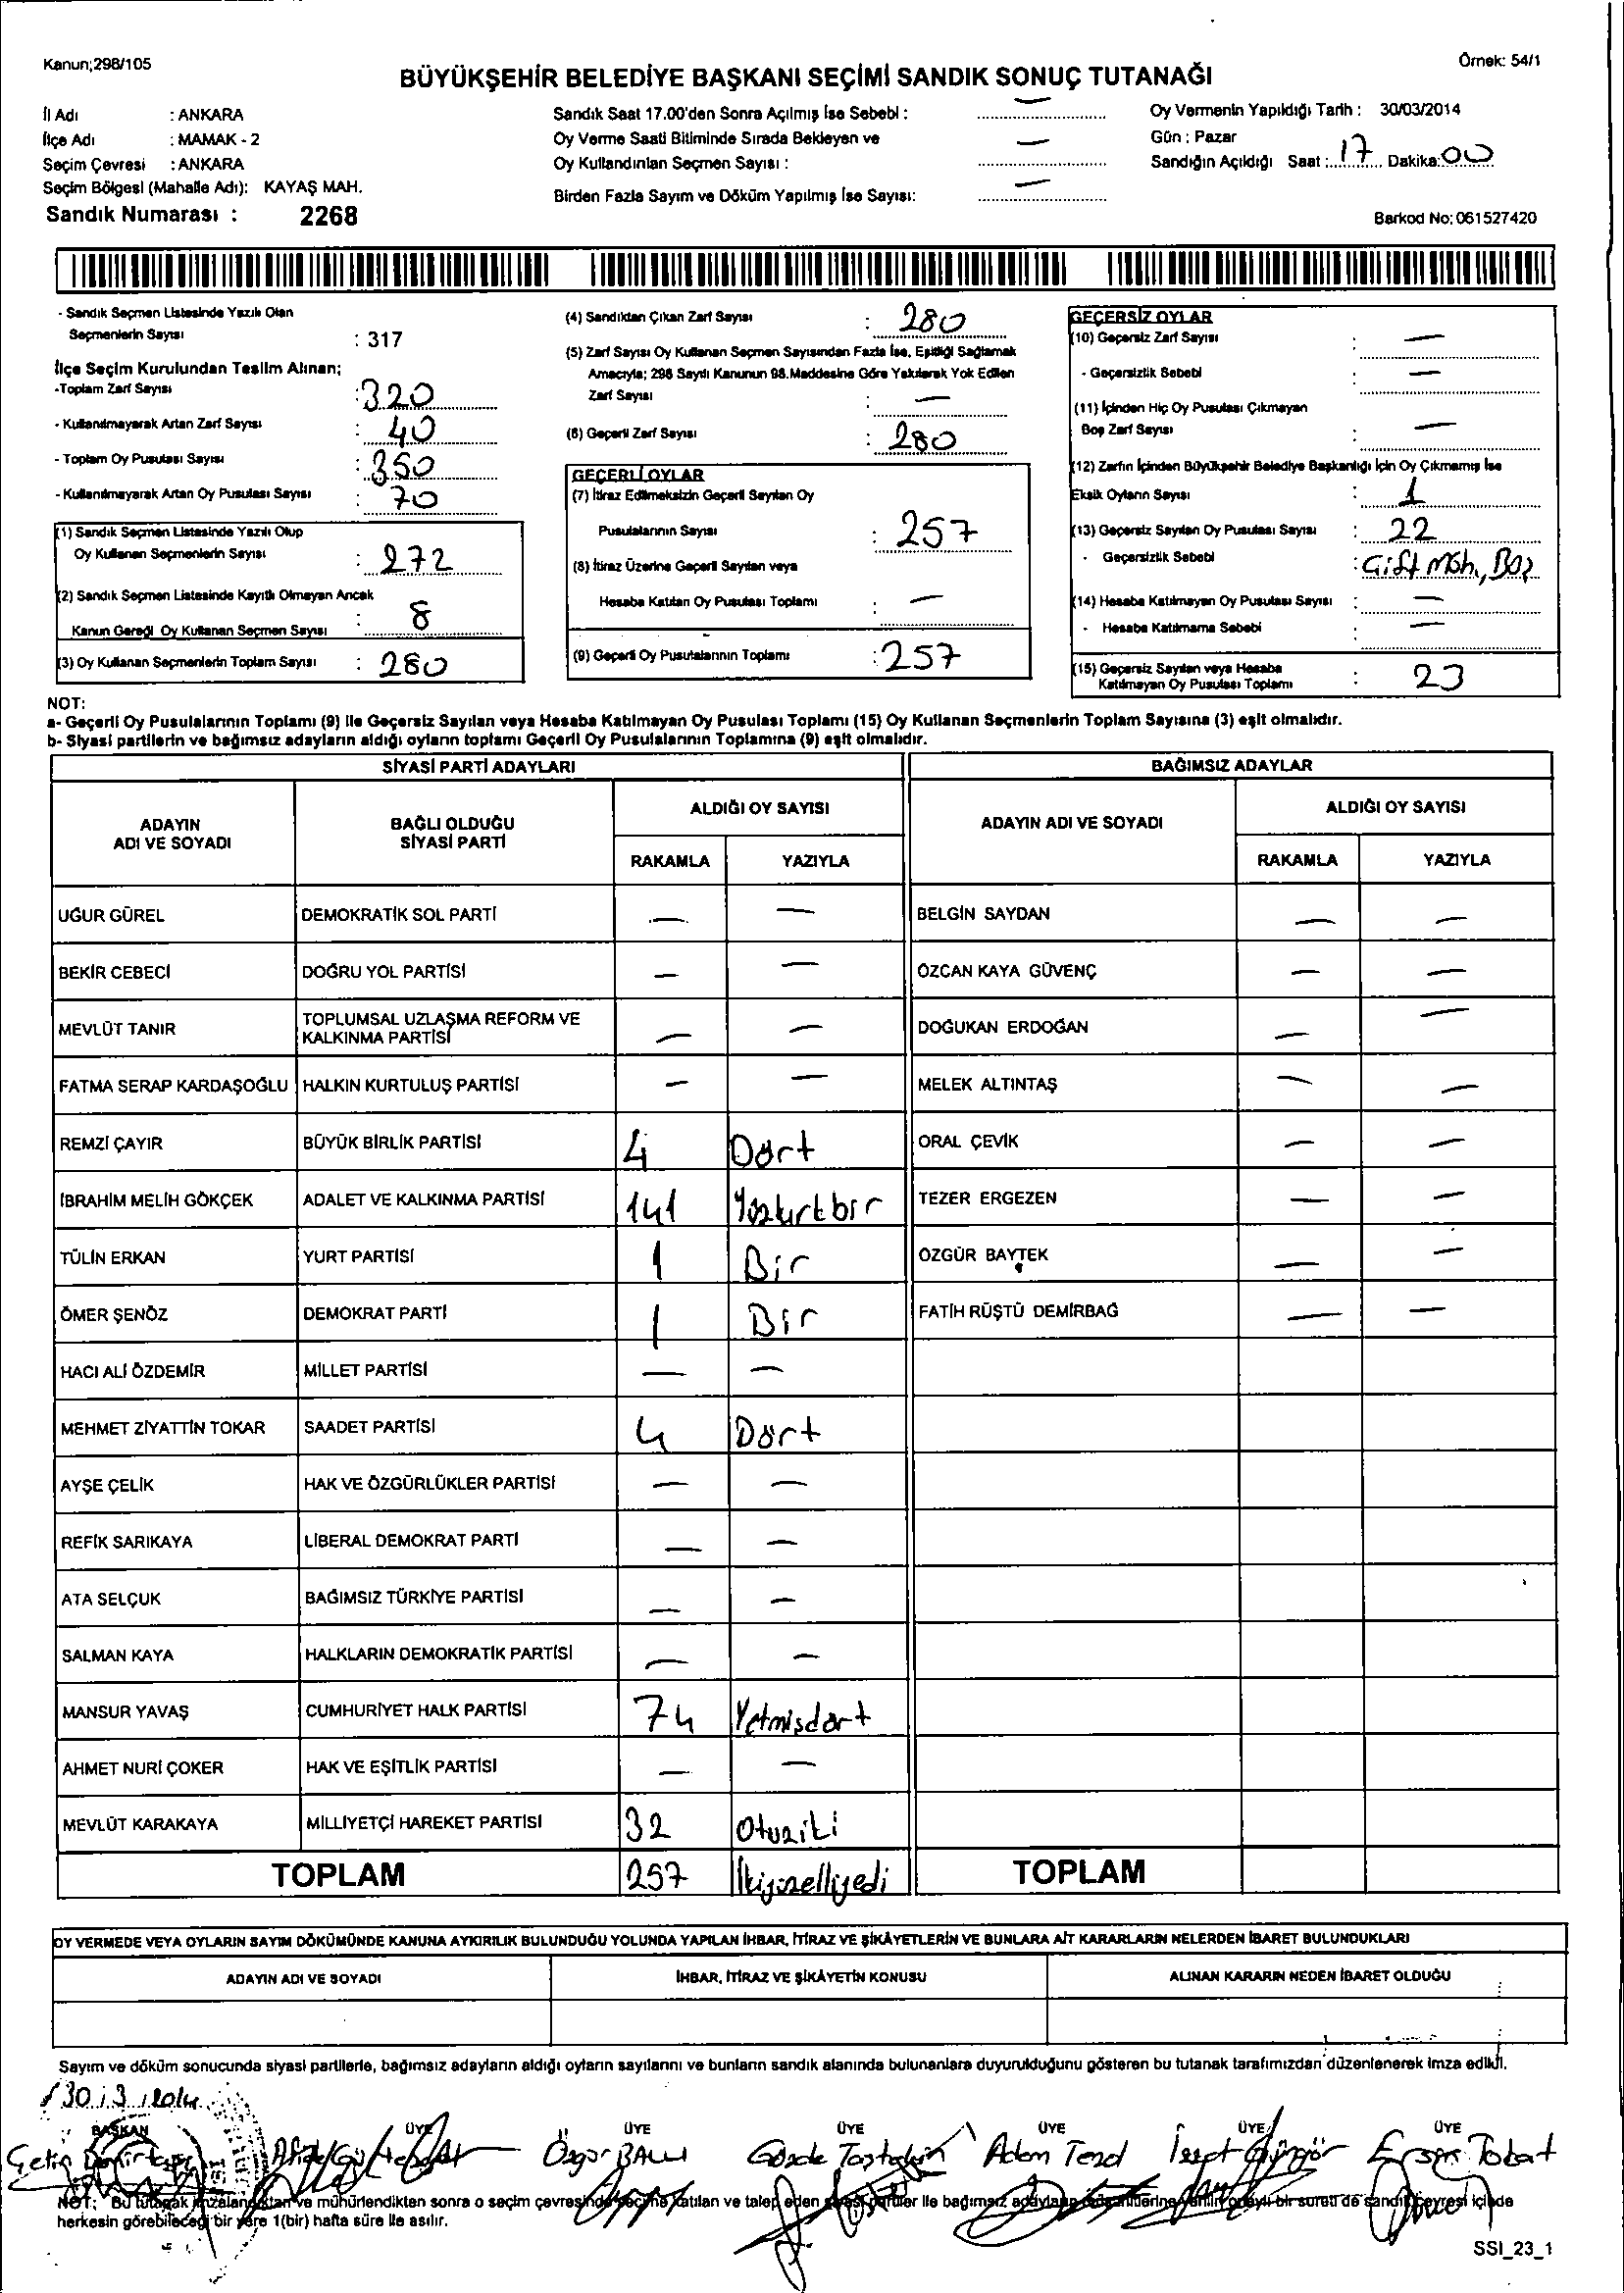 Kanun;298/105
Örnek: 54/1
BÜYÜKŞEHİR BELEDİYE BAŞKANI SEÇİMİ SANDIK SONUÇ TUTANAĞI
İl Adı : ANKARA
İlçe Adı : MAMAK - 2
Seçim Çevresi : ANKARA
Seçim Bölgesi (Mahalle Adı): KAYAŞ MAH.
Sandık Numarası : 2268
Sandık Saat 17.00'den Sonra Açılmış İse Sebebi : —
Oy Verme Saati Bitiminde Sırada Bekleyen ve
Oy Kullandırılan Seçmen Sayısı : —
Birden Fazla Sayım ve Döküm Yapılmış İse Sayısı: —
Oy Vermenin Yapıldığı Tarih : 30/03/2014
Gün : Pazar
Sandığın Açıldığı Saat : 17 Dakika: 00
Barkod No: 061527420
- Sandık Seçmen Listesinde Yazılı Olan
Seçmenlerin Sayısı : 317
İlçe Seçim Kurulundan Teslim Alınan;
-Toplam Zarf Sayısı : 320
- Kullanılmayarak Artan Zarf Sayısı : 40
- Toplam Oy Pusulası Sayısı : 350
- Kullanılmayarak Artan Oy Pusulası Sayısı : 70
(1) Sandık Seçmen Listesinde Yazılı Olup
Oy Kullanan Seçmenlerin Sayısı : 272
(2) Sandık Seçmen Listesinde Kayıtlı Olmayan Ancak
Kanun Gereği Oy Kullanan Seçmen Sayısı : 8
(3) Oy Kullanan Seçmenlerin Toplam Sayısı : 280
(4) Sandıktan Çıkan Zarf Sayısı : 280
(5) Zarf Sayısı Oy Kullanan Seçmen Sayısından Fazla İse, Eşitliği Sağlamak
Amacıyla; 298 Sayılı Kanunun 98.Maddesine Göre Yakılarak Yok Edilen
Zarf Sayısı : —
(6) Geçerli Zarf Sayısı : 280
GEÇERLİ OYLAR
(7) İtiraz Edilmeksizin Geçerli Sayılan Oy
Pusulalarının Sayısı : 257
(8) İtiraz Üzerine Geçerli Sayılan veya
Hesaba Katılan Oy Pusulası Toplamı : —
(9) Geçerli Oy Pusulalarının Toplamı : 257
GEÇERSİZ OYLAR
(10) Geçersiz Zarf Sayısı : —
- Geçersizlik Sebebi : —
(11) İçinden Hiç Oy Pusulası Çıkmayan
Boş Zarf Sayısı : —
(12) Zarfın İçinden Büyükşehir Belediye Başkanlığı İçin Oy Çıkmamış İse
Eksik Oyların Sayısı : 1
(13) Geçersiz Sayılan Oy Pusulası Sayısı : 22
- Geçersizlik Sebebi : Çift Müh., Boş
(14) Hesaba Katılmayan Oy Pusulası Sayısı : —
- Hesaba Katılmama Sebebi : —
(15) Geçersiz Sayılan veya Hesaba
Katılmayan Oy Pusulası Toplamı : 23
NOT:
a- Geçerli Oy Pusulalarının Toplamı (9) ile Geçersiz Sayılan veya Hesaba Katılmayan Oy Pusulası Toplamı (15) Oy Kullanan Seçmenlerin Toplam Sayısına (3) eşit olmalıdır.
b- Siyasi partilerin ve bağımsız adayların aldığı oyların toplamı Geçerli Oy Pusulalarının Toplamına (9) eşit olmalıdır.
SİYASİ PARTİ ADAYLARI BAĞIMSIZ ADAYLAR
ADAYIN ADI VE SOYADI BAĞLI OLDUĞU SİYASİ PARTİ ALDIĞI OY SAYISI ADAYIN ADI VE SOYADI ALDIĞI OY SAYISI
RAKAMLA YAZIYLA RAKAMLA YAZIYLA
UĞUR GÜREL DEMOKRATİK SOL PARTİ — — BELGİN SAYDAN — —
BEKİR CEBECİ DOĞRU YOL PARTİSİ — — ÖZCAN KAYA GÜVENÇ — —
MEVLÜT TANIR TOPLUMSAL UZLAŞMA REFORM VE KALKINMA PARTİSİ — — DOĞUKAN ERDOĞAN — —
FATMA SERAP KARDAŞOĞLU HALKIN KURTULUŞ PARTİSİ — — MELEK ALTINTAŞ — —
REMZİ ÇAYIR BÜYÜK BİRLİK PARTİSİ 4 Dört ORAL ÇEVİK — —
İBRAHİM MELİH GÖKÇEK ADALET VE KALKINMA PARTİSİ 141 Yüzkırkbir TEZER ERGEZEN — —
TÜLİN ERKAN YURT PARTİSİ 1 Bir ÖZGÜR BAYTEK — —
ÖMER ŞENÖZ DEMOKRAT PARTİ 1 Bir FATİH RÜŞTÜ DEMİRBAĞ — —
HACI ALİ ÖZDEMİR MİLLET PARTİSİ — —
MEHMET ZİYATTİN TOKAR SAADET PARTİSİ 4 Dört
AYŞE ÇELİK HAK VE ÖZGÜRLÜKLER PARTİSİ — —
REFİK SARIKAYA LİBERAL DEMOKRAT PARTİ — —
ATA SELÇUK BAĞIMSIZ TÜRKİYE PARTİSİ — —
SALMAN KAYA HALKLARIN DEMOKRATİK PARTİSİ — —
MANSUR YAVAŞ CUMHURİYET HALK PARTİSİ 74 Yetmişdört
AHMET NURİ ÇOKER HAK VE EŞİTLİK PARTİSİ — —
MEVLÜT KARAKAYA MİLLİYETÇİ HAREKET PARTİSİ 32 Otuziki
TOPLAM 257 İkiyüzelliyedi TOPLAM
OY VERMEDE VEYA OYLARIN SAYIM DÖKÜMÜNDE KANUNA AYKIRILIK BULUNDUĞU YOLUNDA YAPILAN İHBAR, İTİRAZ VE ŞİKÂYETLERİN VE BUNLARA AİT KARARLARIN NELERDEN İBARET BULUNDUKLARI
ADAYIN ADI VE SOYADI İHBAR, İTİRAZ VE ŞİKÂYETİN KONUSU ALINAN KARARIN NEDEN İBARET OLDUĞU
Sayım ve döküm sonucunda siyasi partilerle, bağımsız adayların aldığı oyların sayılarını ve bunların sandık alanında bulunanlara duyurulduğunu gösteren bu tutanak tarafımızdan düzenlenerek imza edildi.
30 / 3 / 2014
BAŞKAN ÜYE ÜYE ÜYE ÜYE ÜYE ÜYE
Çetin Özgür BALLI Gözde Adem İzzet Güngör
NOT: Bu tutanak imzalandıktan ve mühürlendikten sonra o seçim çevresinde seçime katılan ve talep eden siyasi partiler ile bağımsız adayların müşahitlerine verilir, onaylı bir sureti de sandık çevresi içinde
herkesin görebileceği bir yere 1(bir) hafta süre ile asılır.
SSI_23_1